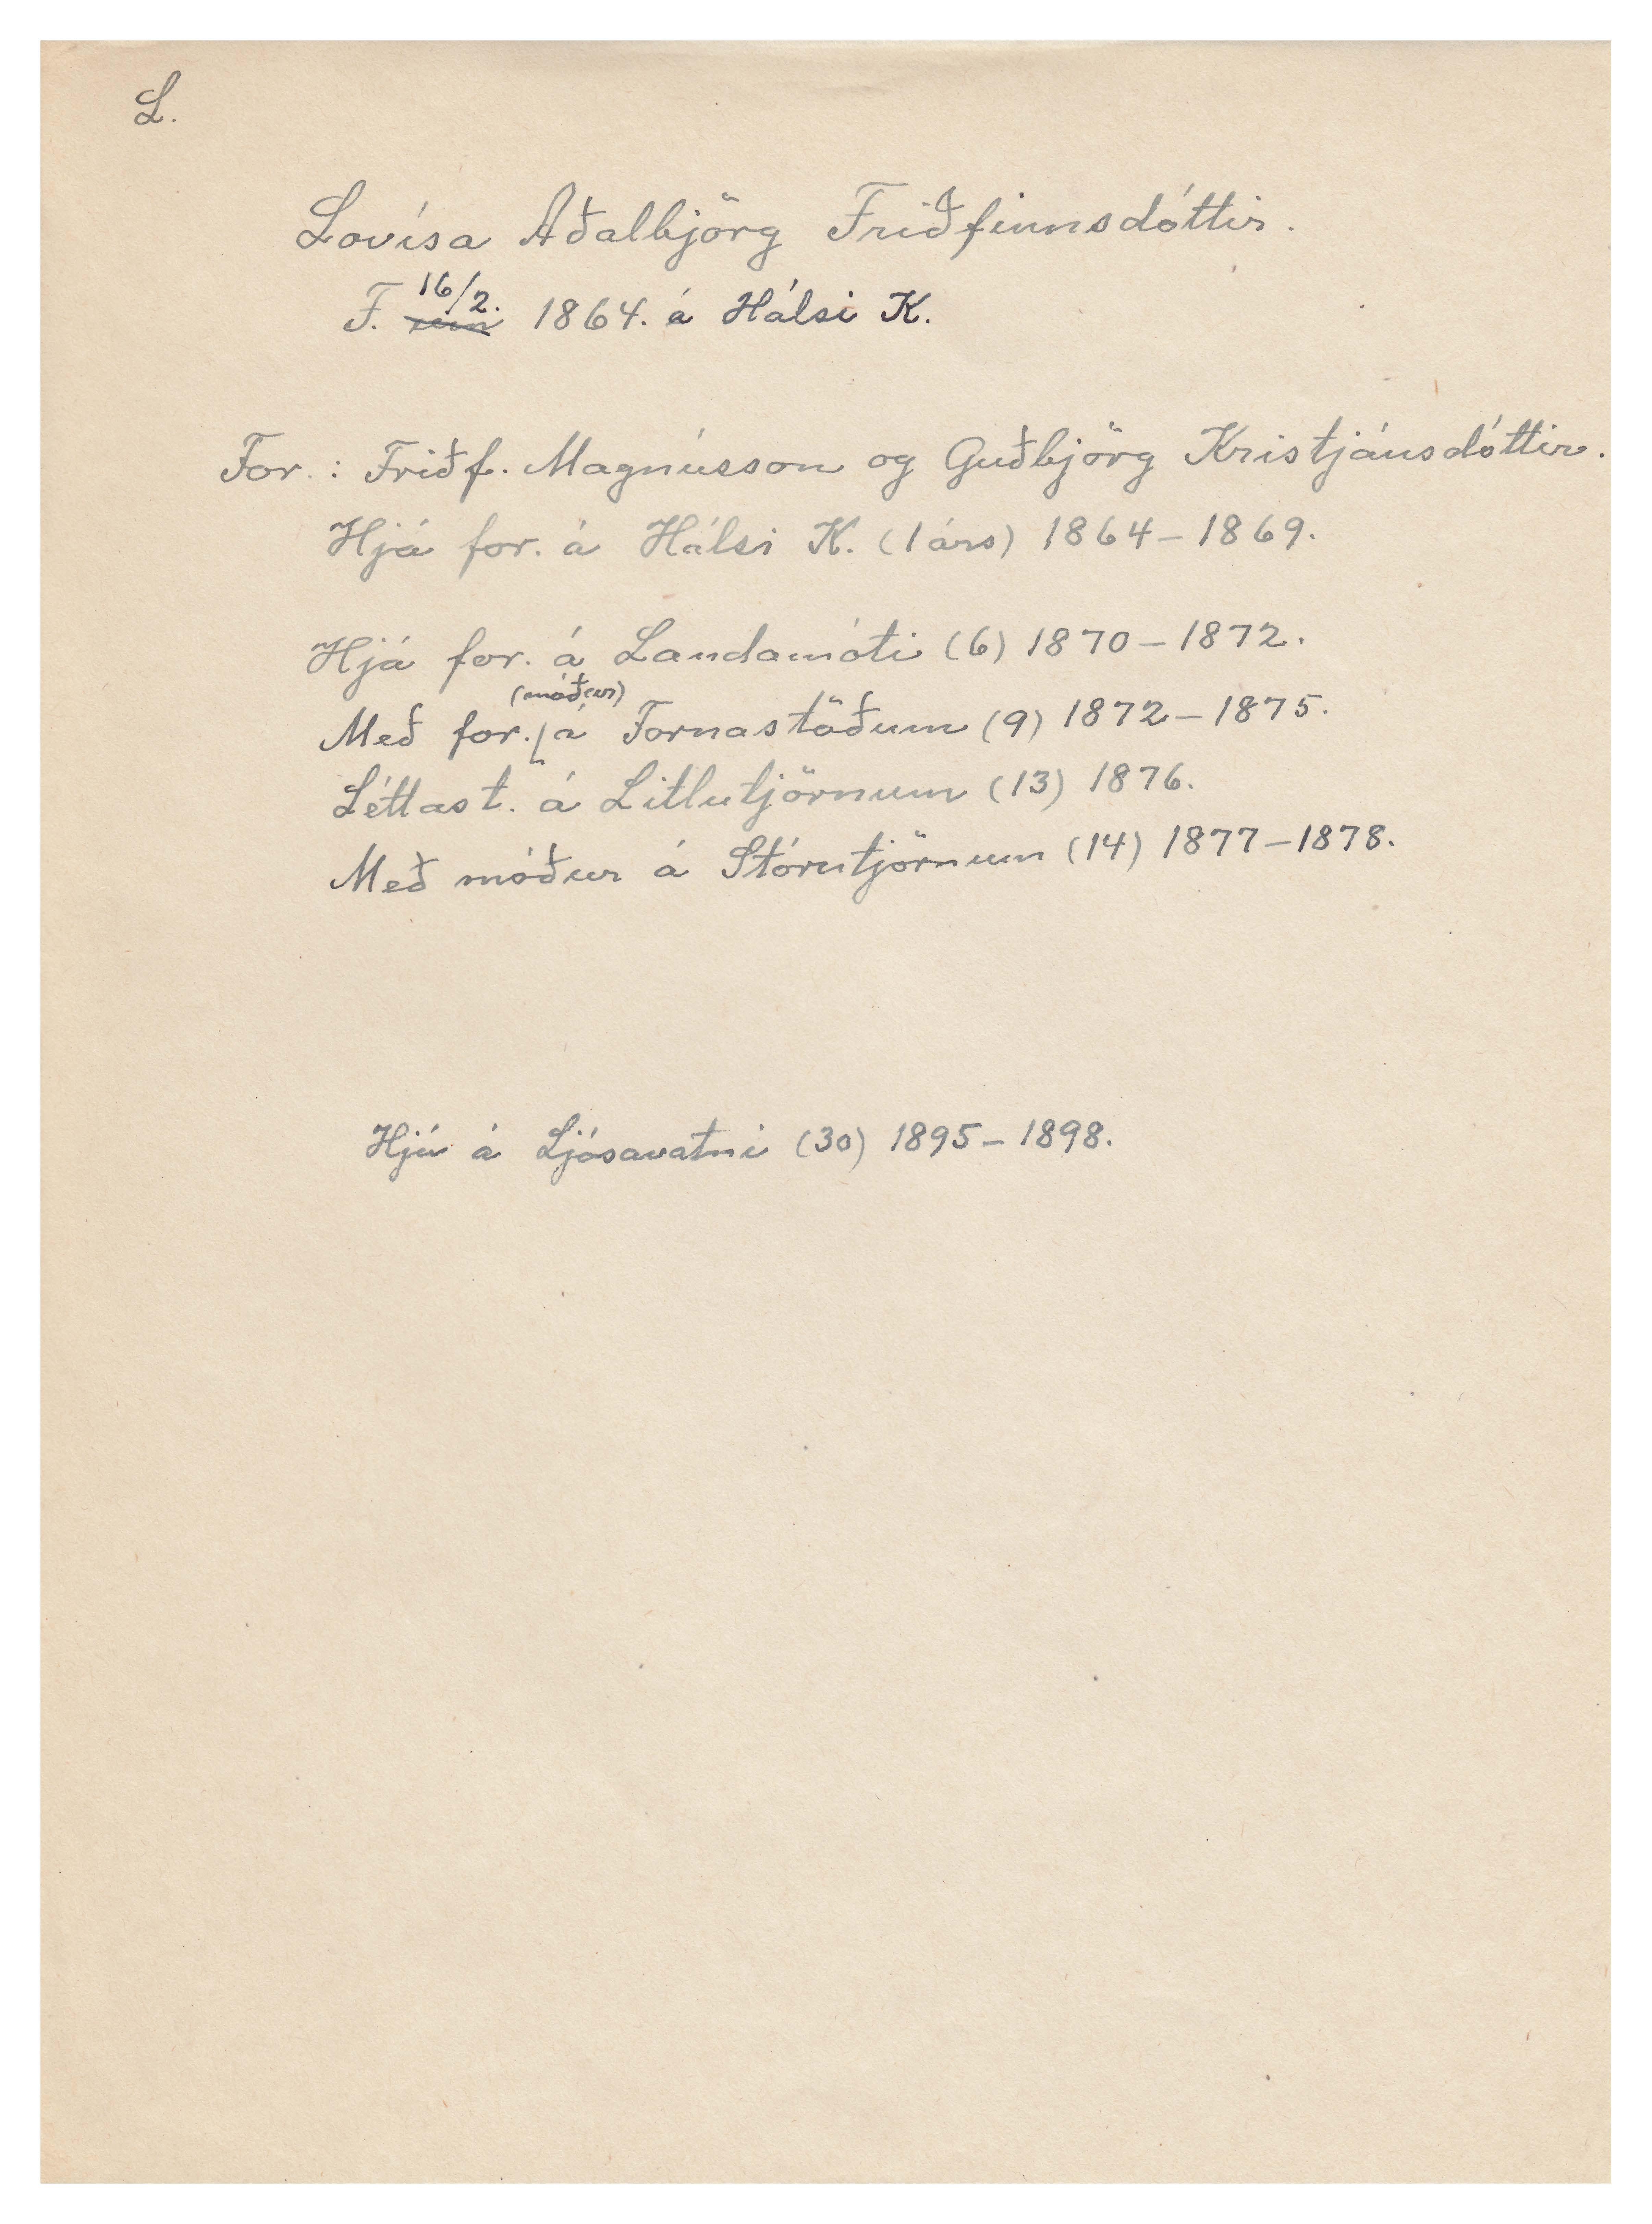 L.
Lovísa Aðalbjörg Friðfinnsdóttir.
F. 16/2. ~~um~~ 1864. á Hálsi K.
For.: Friðf. Magnússon og Guðbjörg Kristjánsdóttir.
Hjá for. á Hálsi K. (1 árs) 1864–1869.
Hjá for. á Landamóti (6) 1870–1872.
(móður)
Með for. á Fornastöðum (9) 1872–1875.
Léttast. á Litlutjörnum (13) 1876.
Með móður á Stórutjörnum (14) 1877–1878.
Hjú á Ljósavatni (30) 1895–1898.